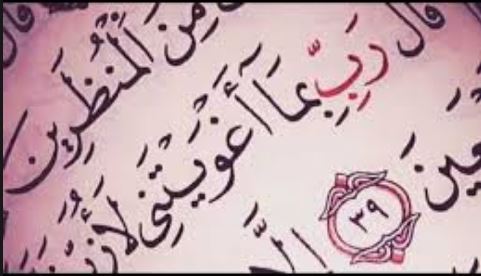 قال
مِنَ الْمُنْظَرِينَ
قَالَ رَبِّ بِمَا أَغْوَيْتَنِي
عِينَ ٣٩